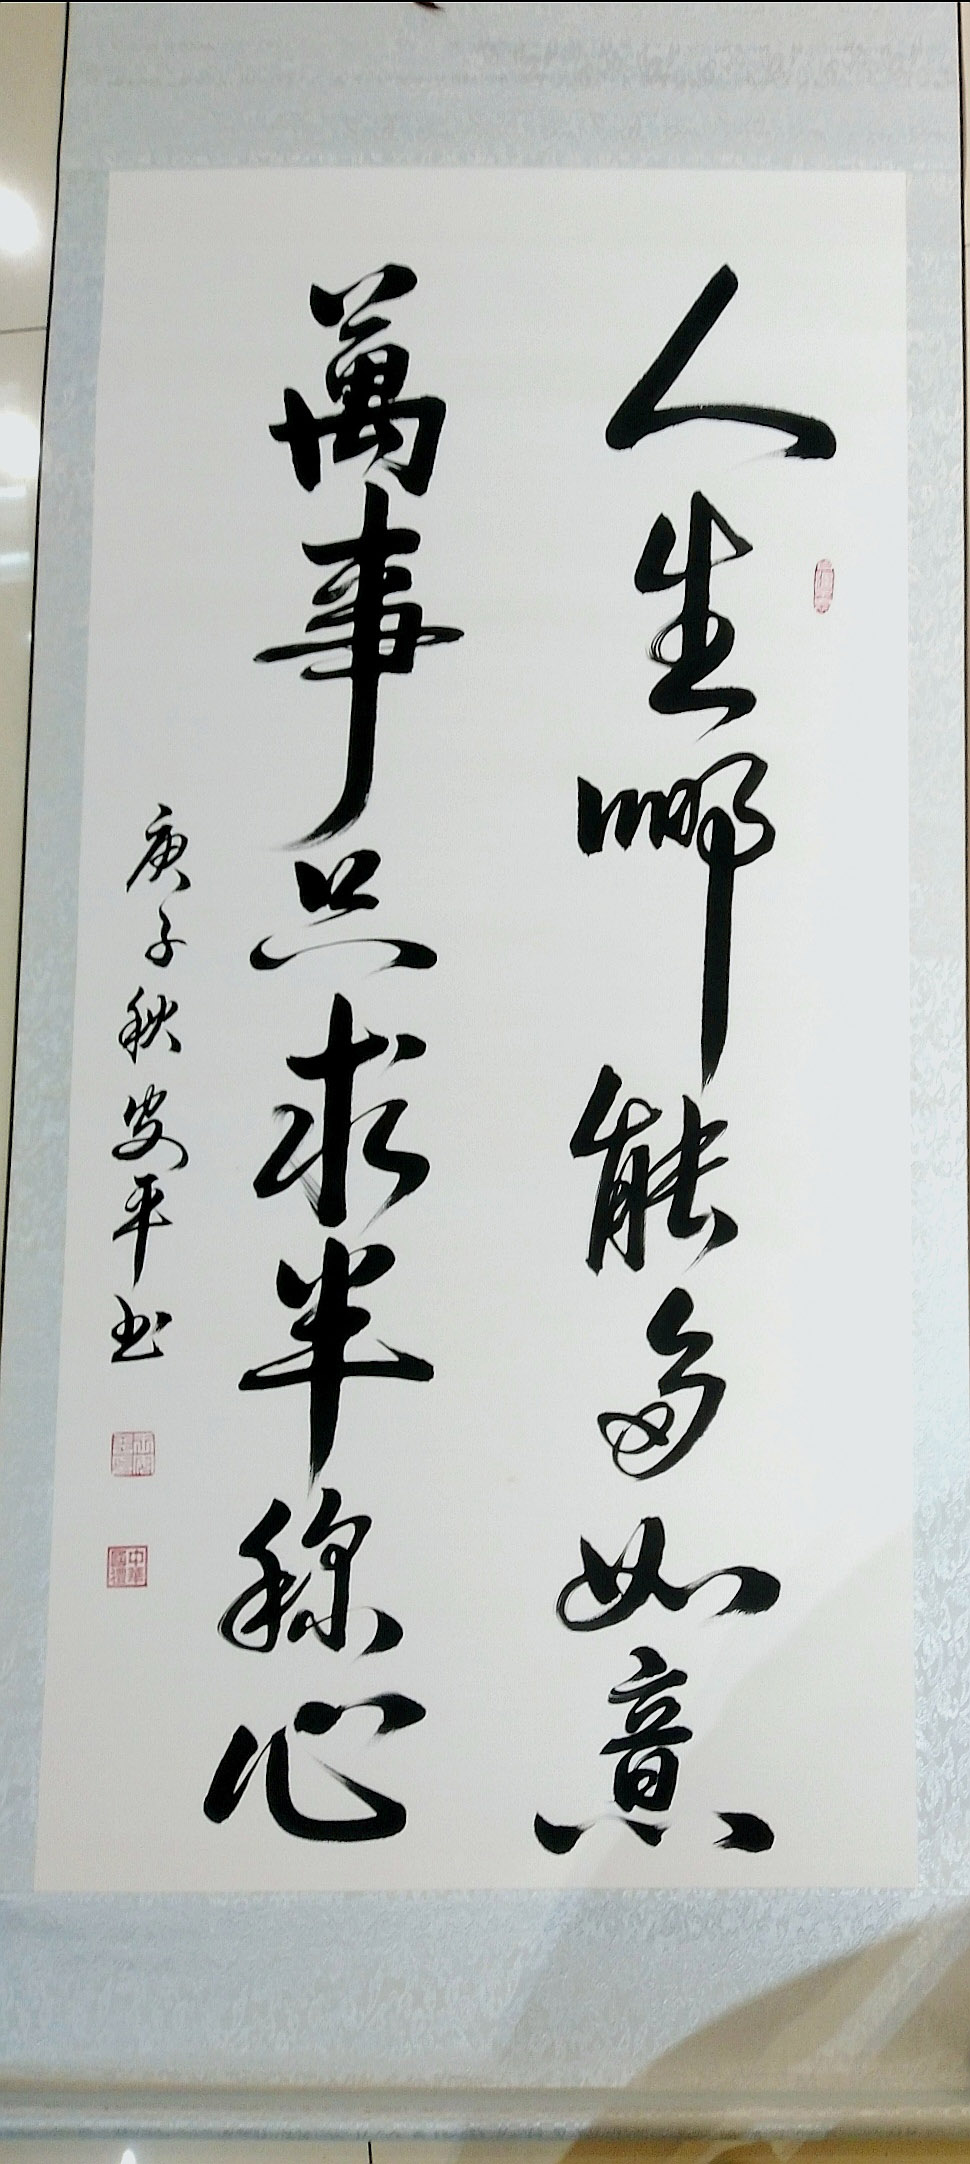 人生哪能多如意
萬事只求半稱心
庚子秋安平书